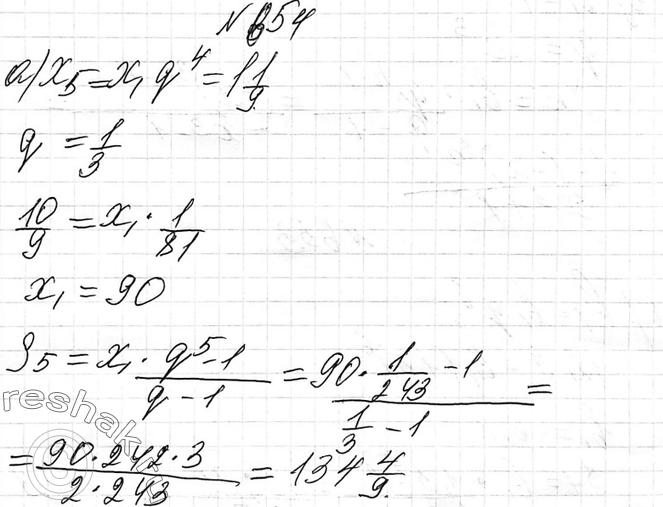 № 654
а) x₅ = x₁ q⁴ = 1 1/9
q = 1/3
10/9 = x₁ · 1/81
x₁ = 90
S₅ = x₁ · (q⁵ - 1)/(q - 1) = (90 · 1/243 - 1)/(1/3 - 1) =
reshak.ru
= (90 · 242 · 3)/(2 · 243) = 134 4/9.